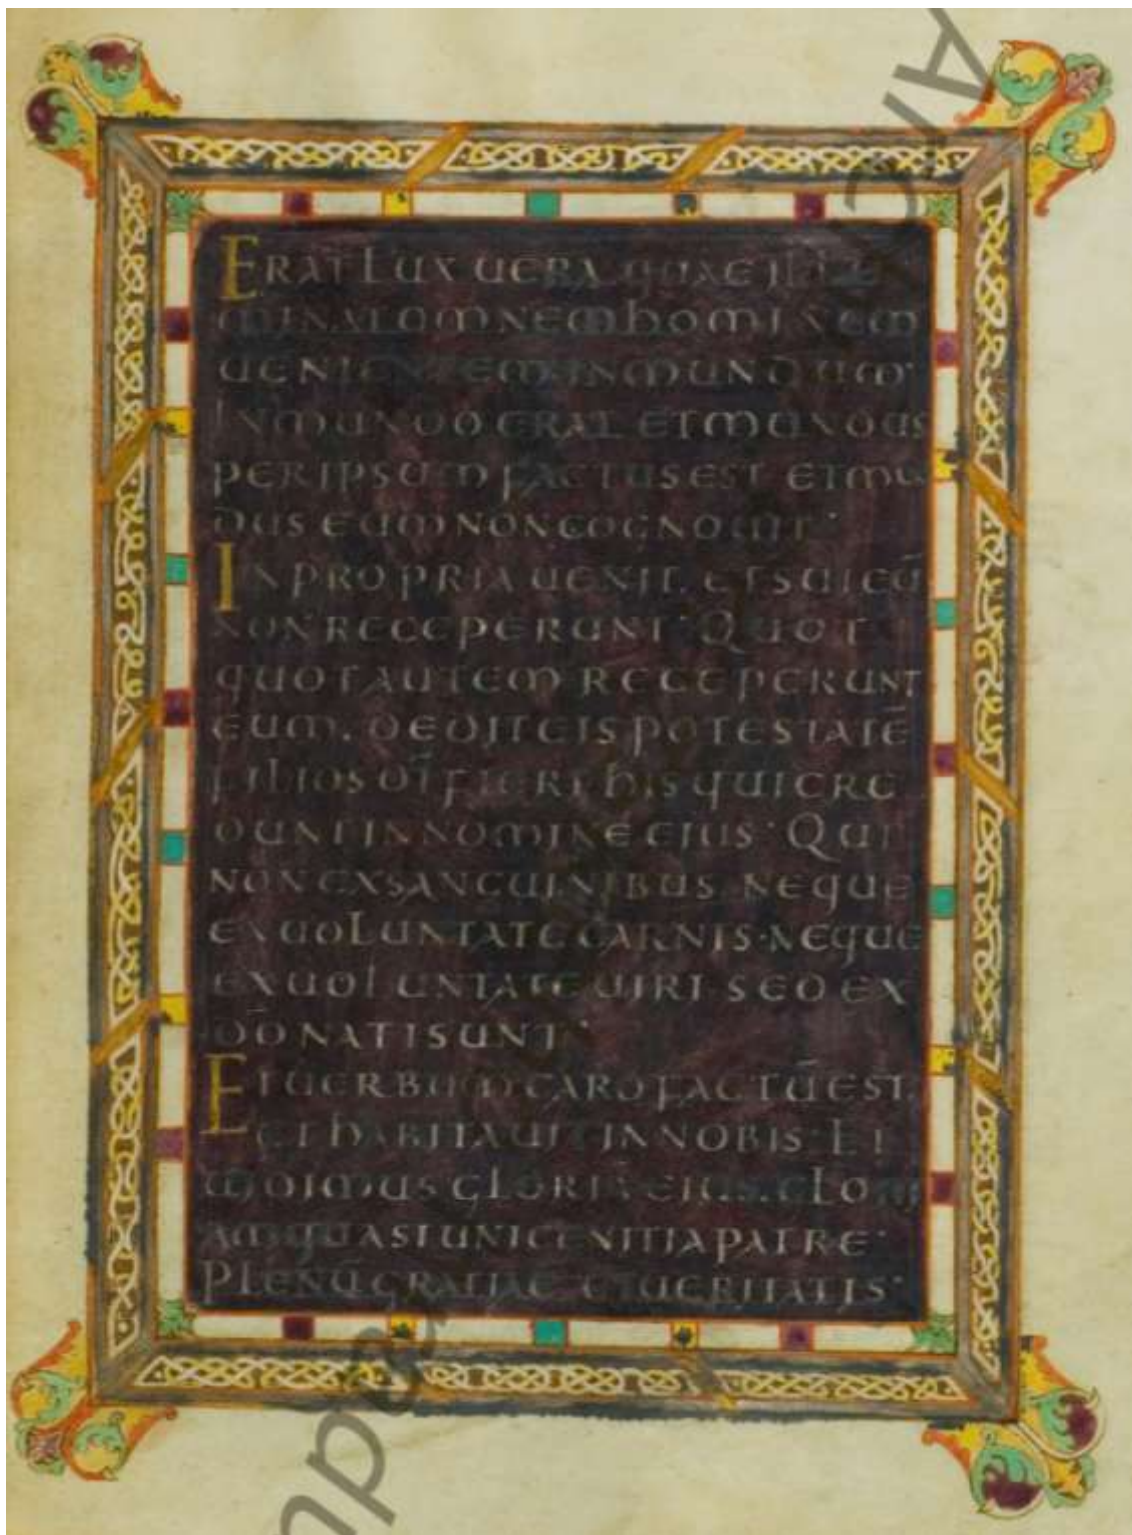 ERAT LUX UERA QUAE ILLU
MINAT OMNEM HOMINEM
UENIENTEM IN MUNDUM·
IN MUNDO ERAT ET MUNDUS
PER IPSUM FACTUS EST ET MU
DUS EUM NON COGNOUIT·
IN PROPRIA UENIT. ET SUI EŪ
NON RECEPERUNT· QUOT
QUOT AUTEM RECEPERUNT
EUM. DEDIT EIS POTESTATĒ
FILIOS DĪ FIERI HIS QUI CRE
DUNT IN NOMINE EIUS· QUI
NON EX SANGUINIBUS NEQUE
EX UOLUNTATE CARNIS· NEQUE
EX UOLUNTATE UIRI· SED EX
DO NATI SUNT·
ET UERBUM CARO FACTŪ EST.
ET HABITAUIT IN NOBIS· ET
UIDIMUS GLORIĀ EIUS. GLORI
AM QUASI UNIGENITI A PATRE·
PLENŪ GRATIAE ET UERITATIS·